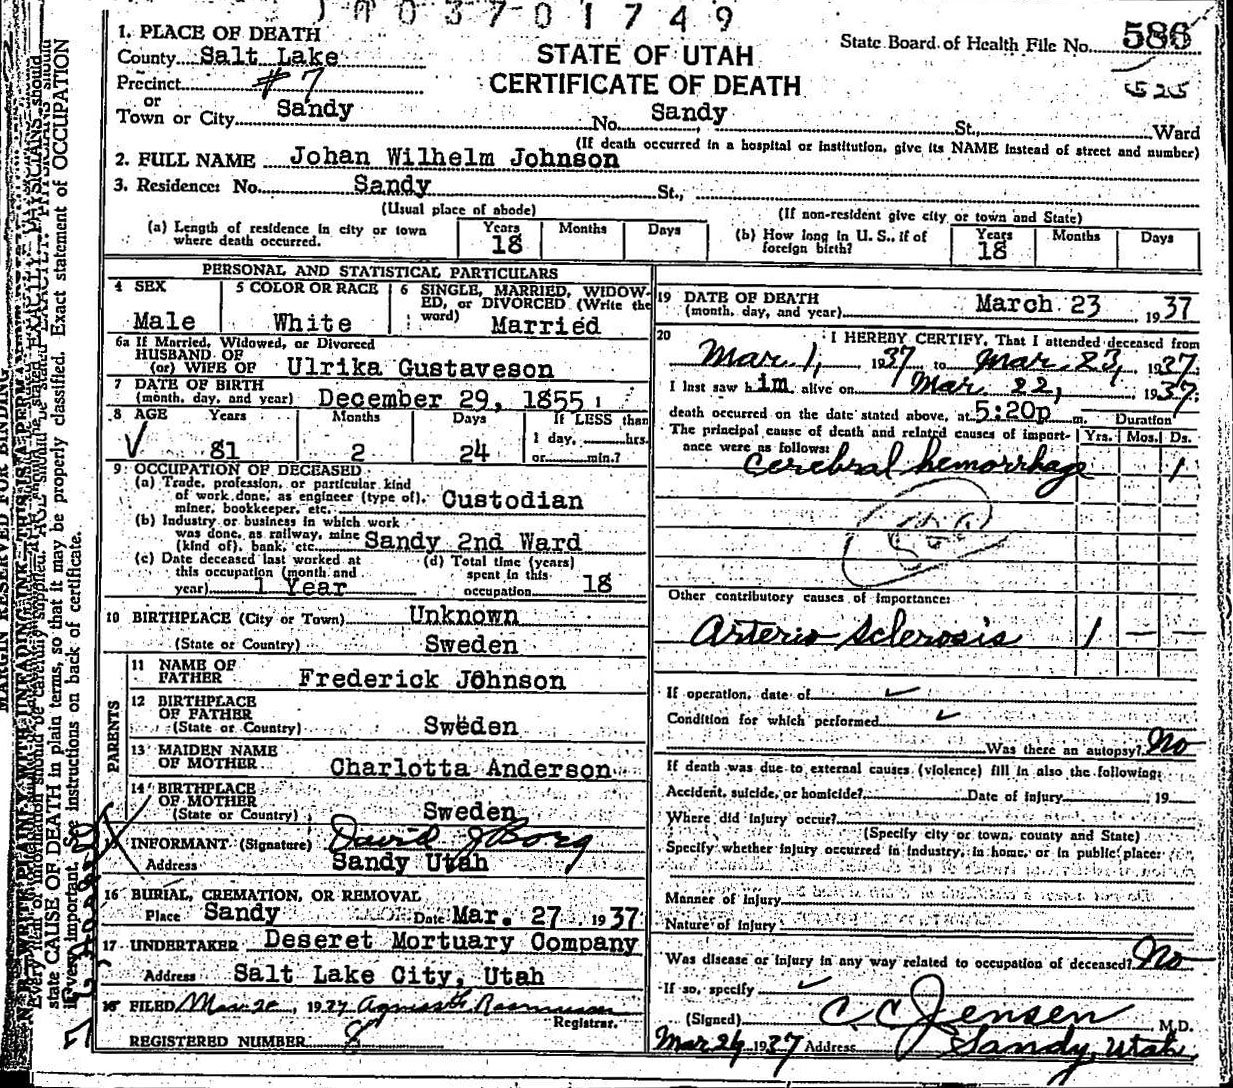 0 3 7 0 1 7 4 9
1. PLACE OF DEATH
County Salt Lake
STATE OF UTAH
CERTIFICATE OF DEATH
State Board of Health File No. 586
525
Precinct #7
or
Town or City Sandy No. Sandy St., Ward
(If death occurred in a hospital or institution, give its NAME instead of street and number)
2. FULL NAME Johan Wilhelm Johnson
3. Residence: No. Sandy St.,
(Usual place of abode) (If non-resident give city or town and State)
(a) Length of residence in city or town where death occurred. Years 18 Months Days
(b) How long in U. S., if of foreign birth? Years 18 Months Days
PERSONAL AND STATISTICAL PARTICULARS
4 SEX Male
5 COLOR OR RACE White
6 SINGLE, MARRIED, WIDOWED, or DIVORCED (Write the word) Married
6a If Married, Widowed, or Divorced
HUSBAND OF
(or) WIFE OF Ulrika Gustaveson
7 DATE OF BIRTH
(month, day, and year) December 29, 1855
8 AGE Years 81 Months 2 Days 24 If LESS than 1 day, hrs. or min.?
9 OCCUPATION OF DECEASED
(a) Trade, profession, or particular kind
of work done, as engineer (type of),
miner, bookkeeper, etc. Custodian
(b) Industry or business in which work
was done, as railway, mine
(kind of), bank, etc. Sandy 2nd Ward
(c) Date deceased last worked at
this occupation (month and
year) 1 Year
(d) Total time (years)
spent in this
occupation 18
10 BIRTHPLACE (City or Town) Unknown
(State or Country) Sweden
PARENTS
11 NAME OF
FATHER Frederick Johnson
12 BIRTHPLACE
OF FATHER
(State or Country) Sweden
13 MAIDEN NAME
OF MOTHER Charlotta Anderson
14 BIRTHPLACE
OF MOTHER
(State or Country) Sweden
INFORMANT (Signature) David J Borg
Address Sandy Utah
16 BURIAL, CREMATION, OR REMOVAL
Place Sandy Date Mar. 27 1937
17 UNDERTAKER Deseret Mortuary Company
Address Salt Lake City, Utah
FILED 1937
Registrar.
REGISTERED NUMBER 8
19 DATE OF DEATH
(month, day, and year) March 23, 1937
20 I HEREBY CERTIFY, That I attended deceased from
Mar 1, 1937 to Mar. 23, 1937.
I last saw him alive on Mar. 22, 1937;
death occurred on the date stated above, at 5:20p m.
The principal cause of death and related causes of importance were as follows: Duration Yrs. Mos. Ds.
Cerebral hemorrhage 1
Other contributory causes of importance:
Arterio Sclerosis 1 — —
If operation, date of
Condition for which performed
Was there an autopsy? No
If death was due to external causes (violence) fill in also the following:
Accident, suicide, or homicide? Date of injury 19
Where did injury occur?
(Specify city or town, county and State)
Specify whether injury occurred in industry, in home, or in public place:
Manner of injury
Nature of injury
Was disease or injury in any way related to occupation of deceased? No
If so, specify
(Signed) C. C. Jensen M.D.
1937 Address Sandy, Utah
MARGIN RESERVED FOR BINDING
state CAUSE OF DEATH in plain terms, so that it may be properly classified. Exact statement of OCCUPATION
is very important. See instructions on back of certificate.